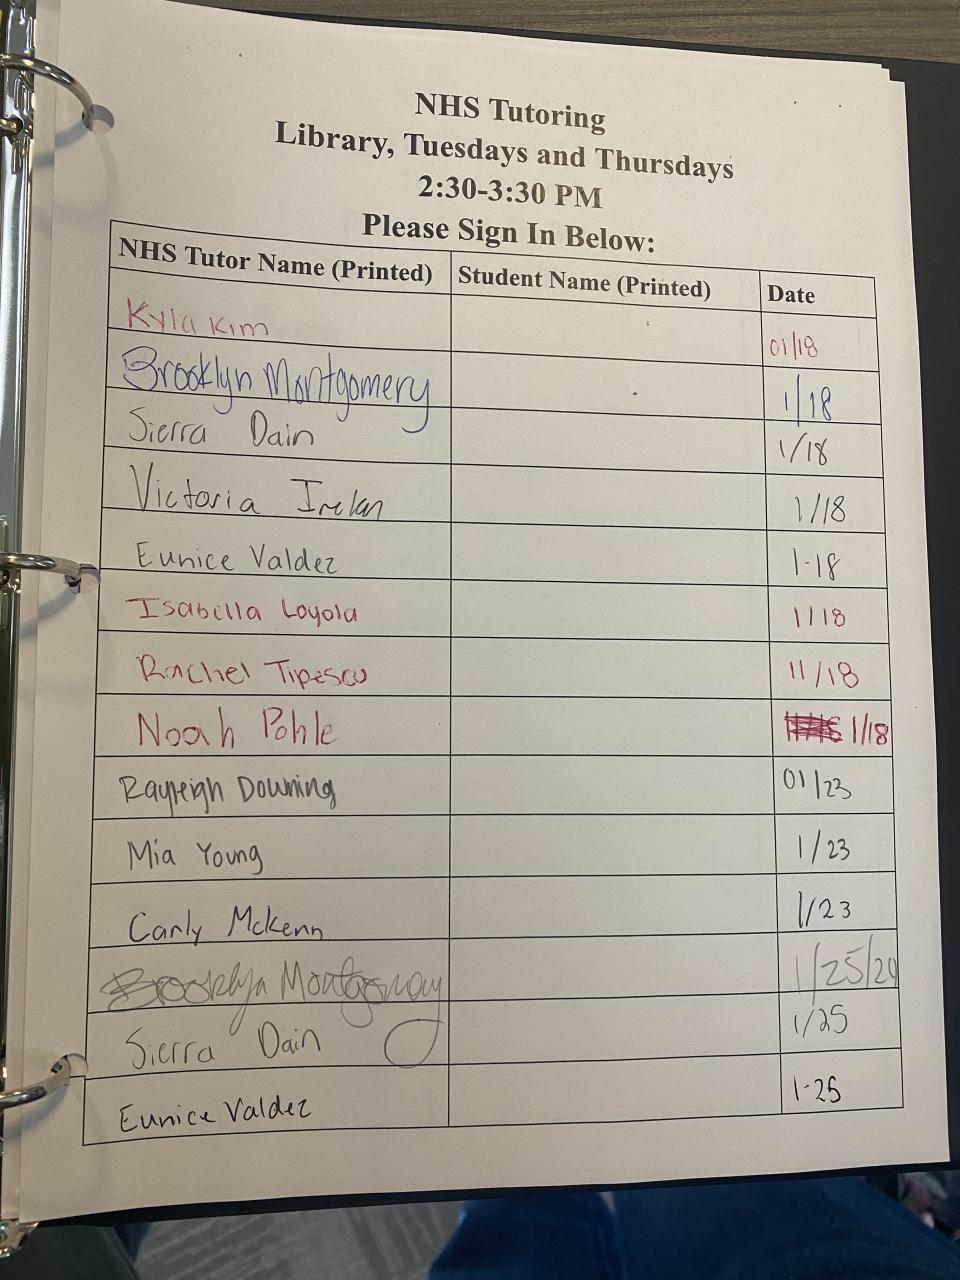 NHS Tutoring
Library, Tuesdays and Thursdays
2:30-3:30 PM
Please Sign In Below:
NHS Tutor Name (Printed) Student Name (Printed) Date
Kyla Kim 01/18
Brooklyn Montgomery 1/18
Sierra Dain 1/18
Victoria Irelan 1/18
Eunice Valdez 1-18
Isabella Loyola 1/18
Rachel Tipescu 11/18
Noah Pohle 1/18
Rayleigh Downing 01/23
Mia Young 1/23
Carly McKenn 1/23
Brooklyn Montgomery 1/25/24
Sierra Dain 1/25
Eunice Valdez 1-25